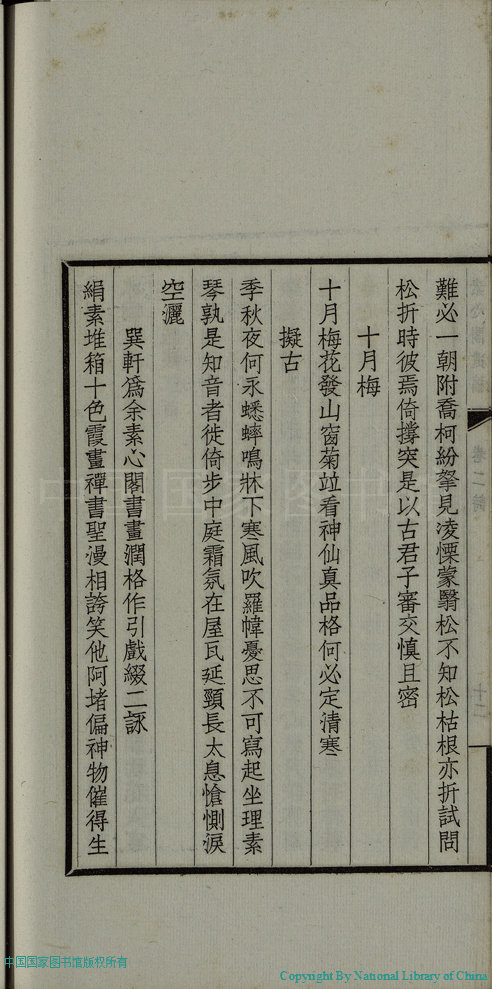 難必一朝附喬柯紛拏見淩慄蒙翳松不知松枯根亦折試問
松折時彼焉倚撐突是以古君子審交慎且密
十月梅
十月梅花發山窗菊竝看神仙真品格何必定清寒
擬古
季秋夜何永蟋蟀鳴牀下寒風吹羅幃憂思不可寫起坐理素
琴孰是知音者徙倚步中庭霜氛在屋瓦延頸長太息愴惻淚
空灑
巽軒爲余素心閣書畫潤格作引戲綴二詠
絹素堆箱十色霞畫禪書聖漫相誇笑他阿堵偏神物催得生
卷二詩
十二
中国国家图书馆版权所有
Copyright By National Library of China